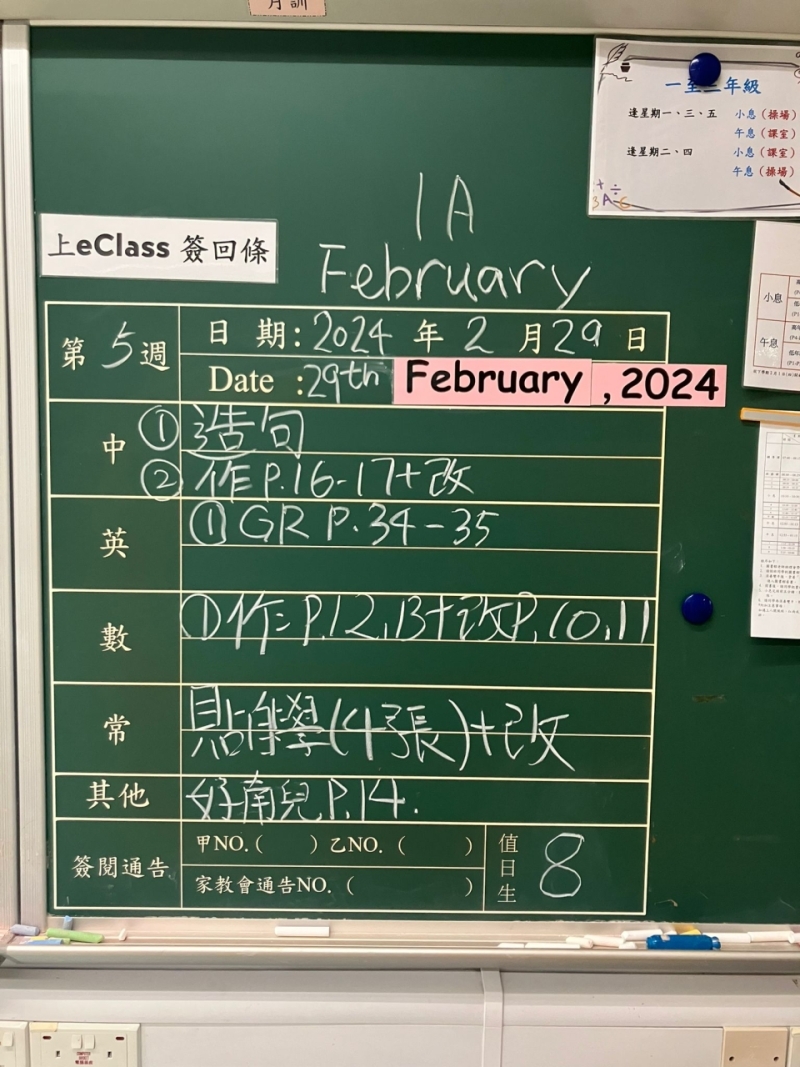 月訓
一至二年級
逢星期一、三、五 小息(操場)
午息(課室)
逢星期二、四 小息(課室)
午息(操場)
1A
上eClass 簽回條
February
小息
午息
第5週 日 期:2024 年 2 月 29 日
Date :29th February , 2024
中 ① 造句
② 作P.16-17+改
英 ① GR P.34-35
數 ①作:P.12,13+改P.10,11
常 貼自學(4張)+改
其他 好南兒P.14.
簽閱通告 甲NO.( ) 乙NO. ( )
家教會通告NO. ( )
值日生 8